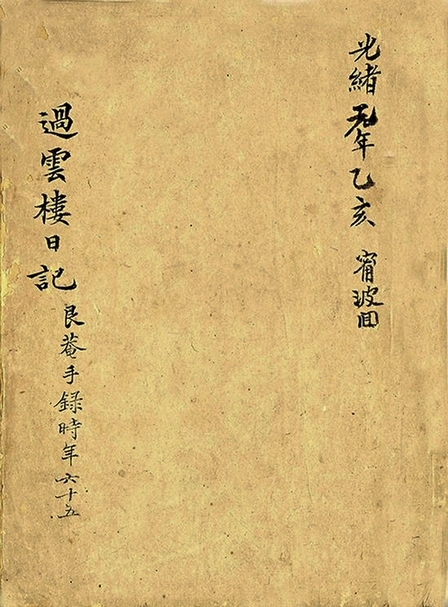 光緒元年乙亥 甯波回
過雲樓日記 艮菴手錄時年六十五